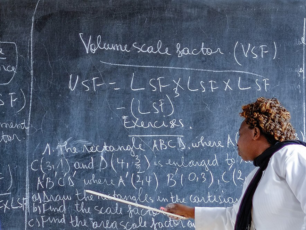 Volume scale factor (VSF)
VSF = LSF × LSF × LSF
= (LSF)³
Exercise.
1. The Rectangle ABCD, where A
C(3,1) and D(4, is enlarged to
A'B'C'D' where A'(2,4) B'(0,3), C'(2,
a) Draw the rectangles in the cartesian
b) Find the scale factor
c) Find the area scale factor